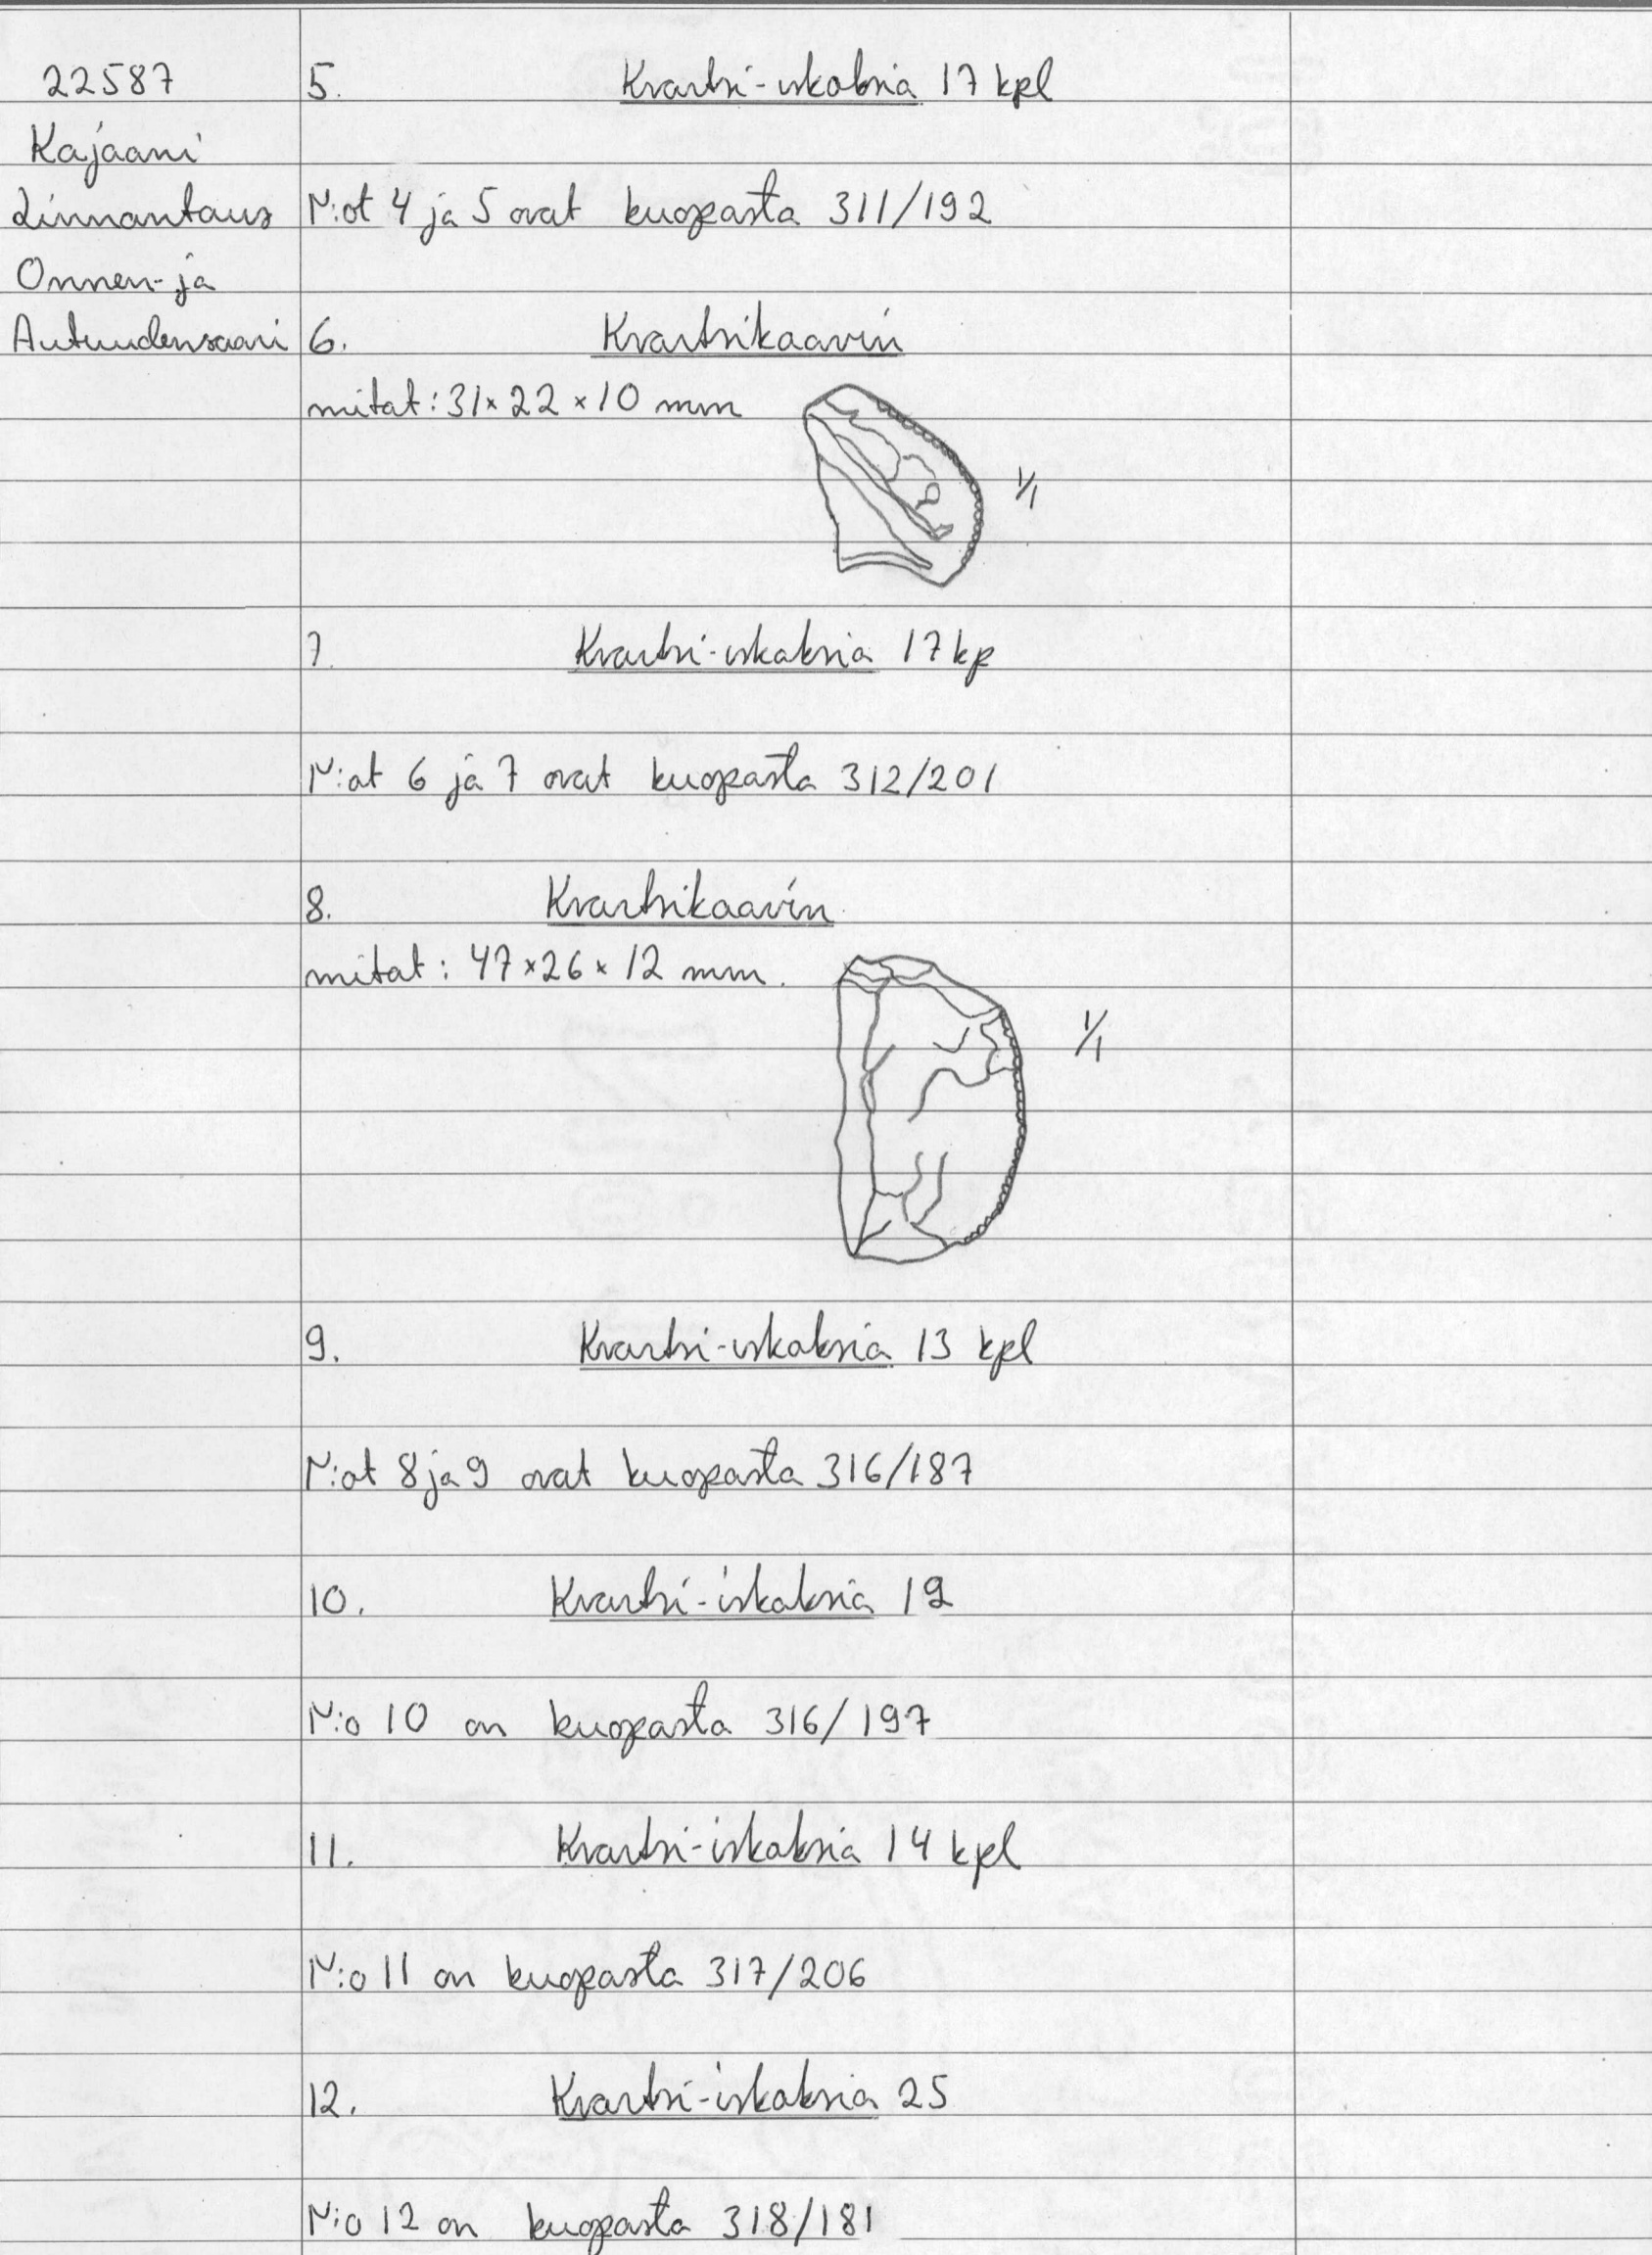 22587
Kajaani
Linnantaus
Onnen- ja
Autuudensaari
5. Kvartsi-iskoksia 17 kpl
N:ot 4 ja 5 ovat kuopasta 311/192
6. Kvartsikaavin
mitat: 31×22×10 mm
1/1
7. Kvartsi-iskoksia 17 kp
N:ot 6 ja 7 ovat kuopasta 312/201
8. Kvartsikaavin
mitat: 47×26×12 mm.
1/1
9. Kvartsi-iskoksia 13 kpl
N:ot 8 ja 9 ovat kuopasta 316/187
10. Kvartsi-iskoksia 19
N:o 10 on kuopasta 316/197
11. Kvartsi-iskoksia 14 kpl
N:o 11 on kuopasta 317/206
12. Kvartsi-iskoksia 25
N:o 12 on kuopasta 318/181